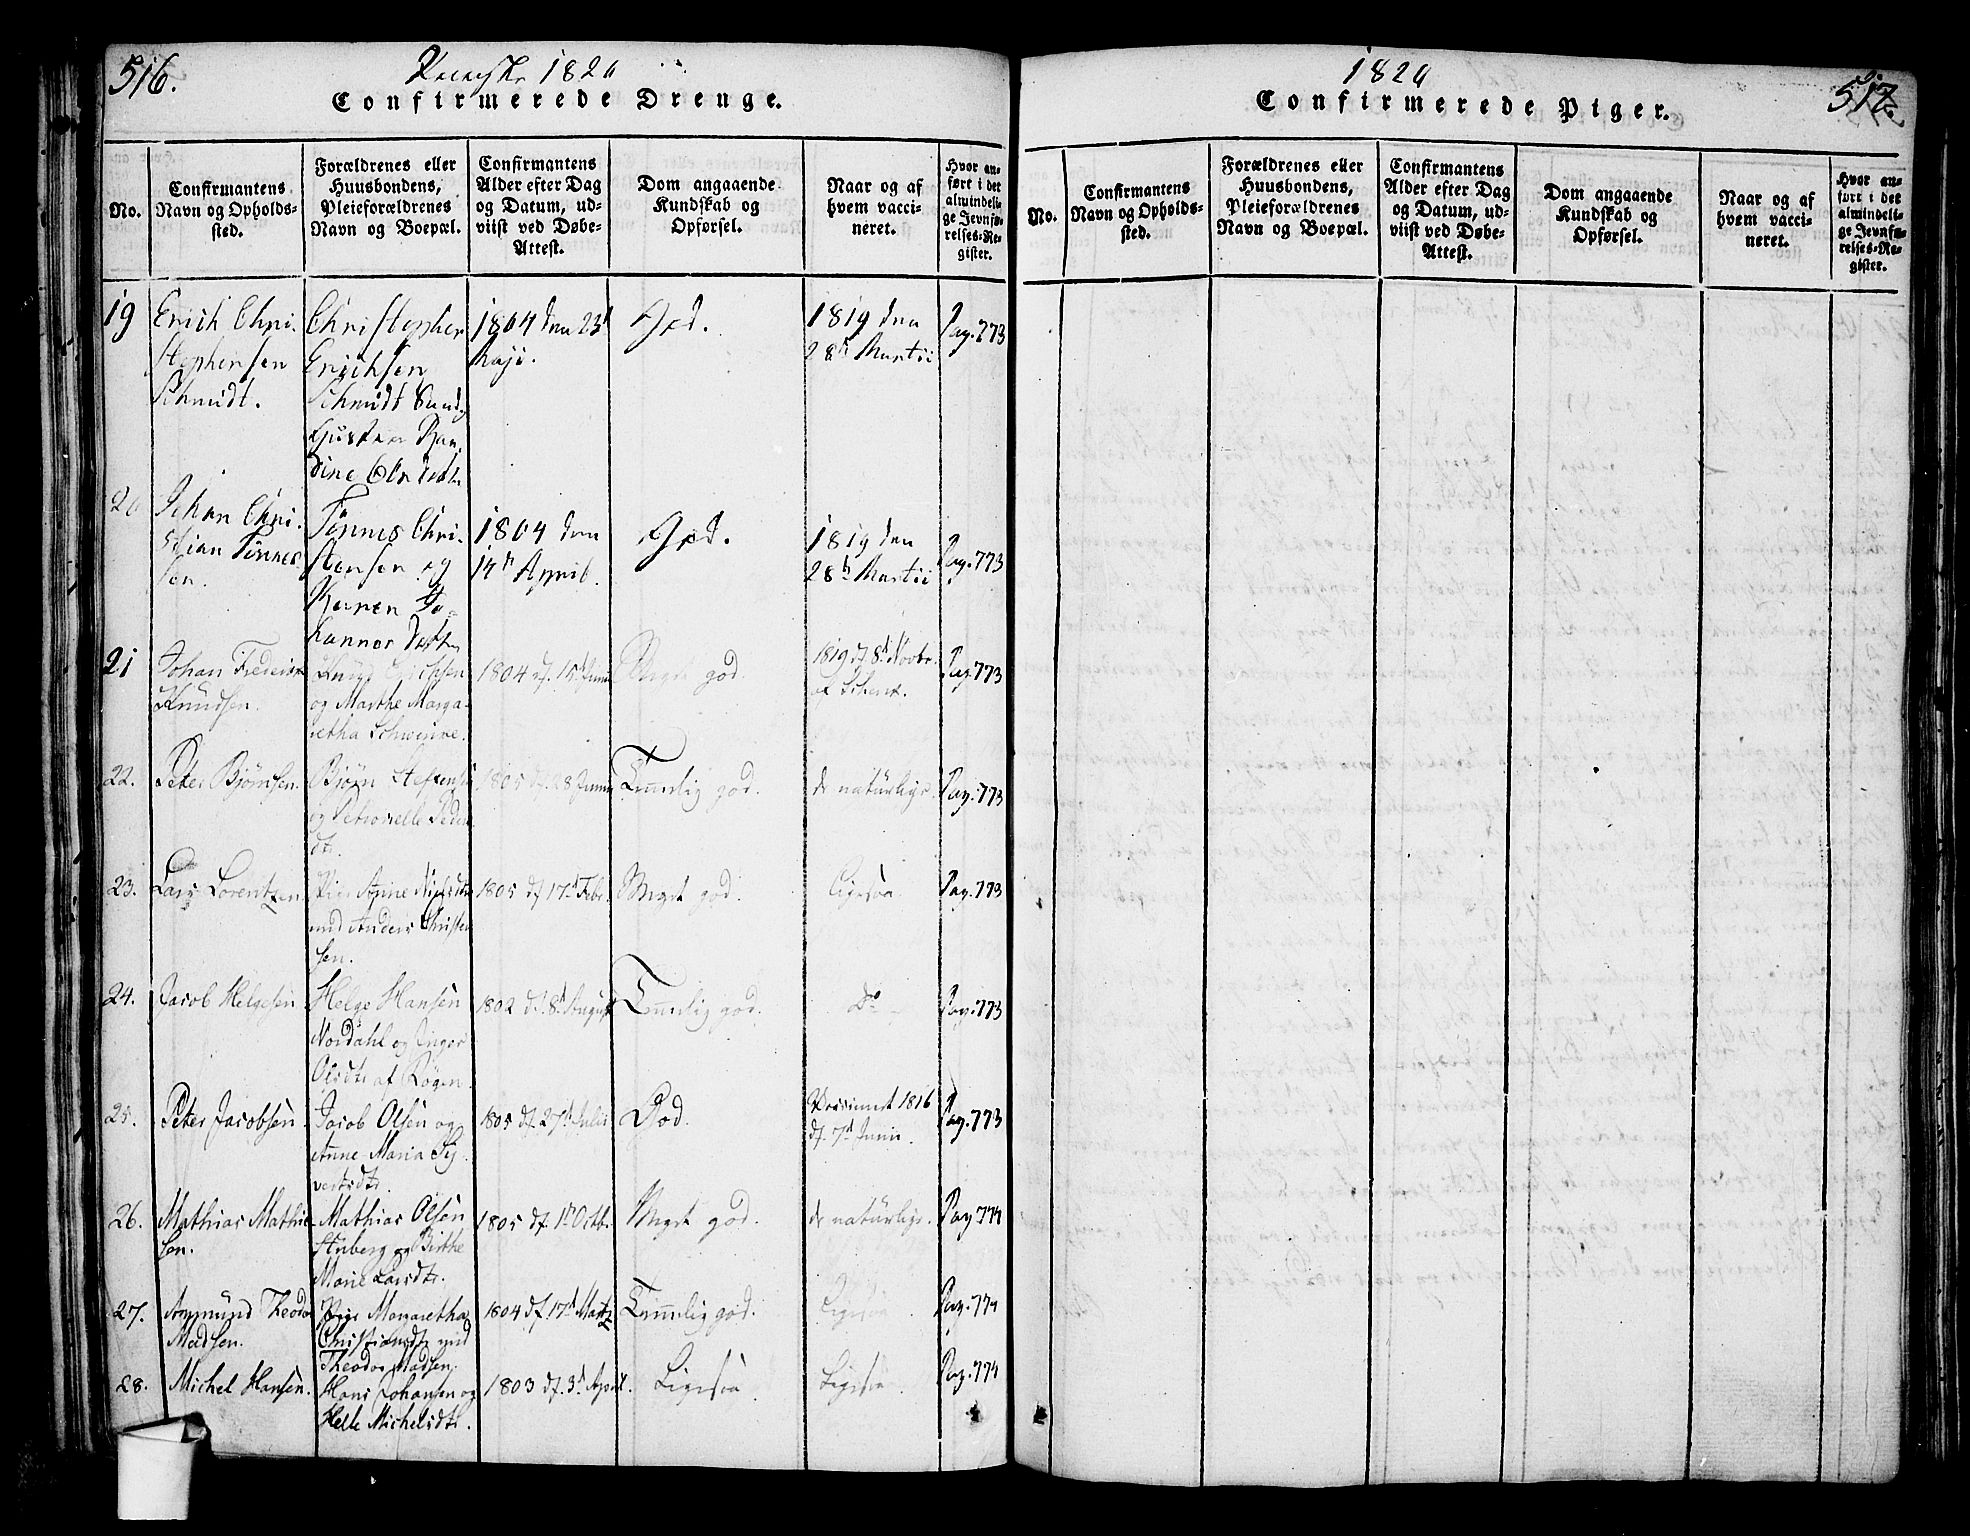 516.
1820
Confirmerede Drenge.
No.
Confirmantens
Navn og Opholds-
sted.
Forældrenes eller
Huusbondens,
Pleieforældrenes
Navn og Boepæl.
Confirmantens
Alder efter Dag
og Datum, ud-
viist ved Døbe-
Attest.
Dom angaaende
Kundskab og
Opførsel.
Naar og af
hvem vacci-
neret.
Hvor an-
ført i det
almindeli-
ge Jevnfø-
relses-Re-
gister.
19
Erich Chri-
stephersen
Schmidt.
Christopher
Erichsen
Schmidt
1804 den 23d
Maji.
God.
1819 den
28d Martii
Pag. 773
20
Johan Chri-
stian Tønnes-
sen.
Tønnes Chri-
stensen og
Karen Jo-
hannes Datter
1804 den
14d April.
God.
1819 den
28d Martii
Pag. 773
21
Johan Frederik
Knudsen.
Knud Erichsen
og Marthe Marga-
retha Schwenne.
1804 d. 15d Juni
Meget god.
1819 d. 8d Novbr.
af Schenk.
Pag. 773
22.
Peter Bjørnsen.
Bjørn Steffensen
og Petronelle Peders
dtr.
1805 d. 28 Junii
Temelig god.
de natürlige.
Pag. 773
23.
Lars Lorentzen
Pige Anne Nielsdtr
med Anders Christen
sen.
1805 d. 17d Febr.
Meget god.
Ligesaa
Pag. 773
24.
Jacob Helgesen
Helge Hansen
Nordahl og Inger
Olsdtr af Røgen
1802 d. 8d August
Temelig god.
Do
Pag. 773
25.
Peter Jacobsen
Jacob Olsen og
Anne Maria Sy-
vertsdtr.
1805 d. 27d Julii
God.
Vaccineret 1816
d. 7d Junii.
Pag. 773
26.
Mathias Mathie-
sen.
Mathias Olsen
Stuberg og Birthe
Marie Larsdtr.
1805 d. 1d Octb.
Meget god.
de natürlige.
Pag 774
27.
Asmund Theodor
Madsen.
Pige Margaretha
Christiansdtr med
Theodor Madsen.
1804 d. 17d Martz
Temelig god.
Ligesaa
Pag. 774
28.
Michel Hansen.
Hans Johansen og
Helle Michelsdtr.
1803 d. 3d April.
Ligesaa
Ligesaa.
Pag. 774
1820
517.
Confirmerede Piger.
No.
Confirmantens
Navn og Opholds-
sted.
Forældrenes eller
Huusbondens,
Pleieforældrenes
Navn og Boepæl.
Confirmantens
Alder efter Dag
og Datum, ud-
viist ved Døbe-
Attest.
Dom angaaende
Kundskab og
Opførsel.
Naar og af
hvem vacci-
neret.
Hvor an-
ført i det
almindeli-
ge Jevnfø-
relses-Re-
gister.